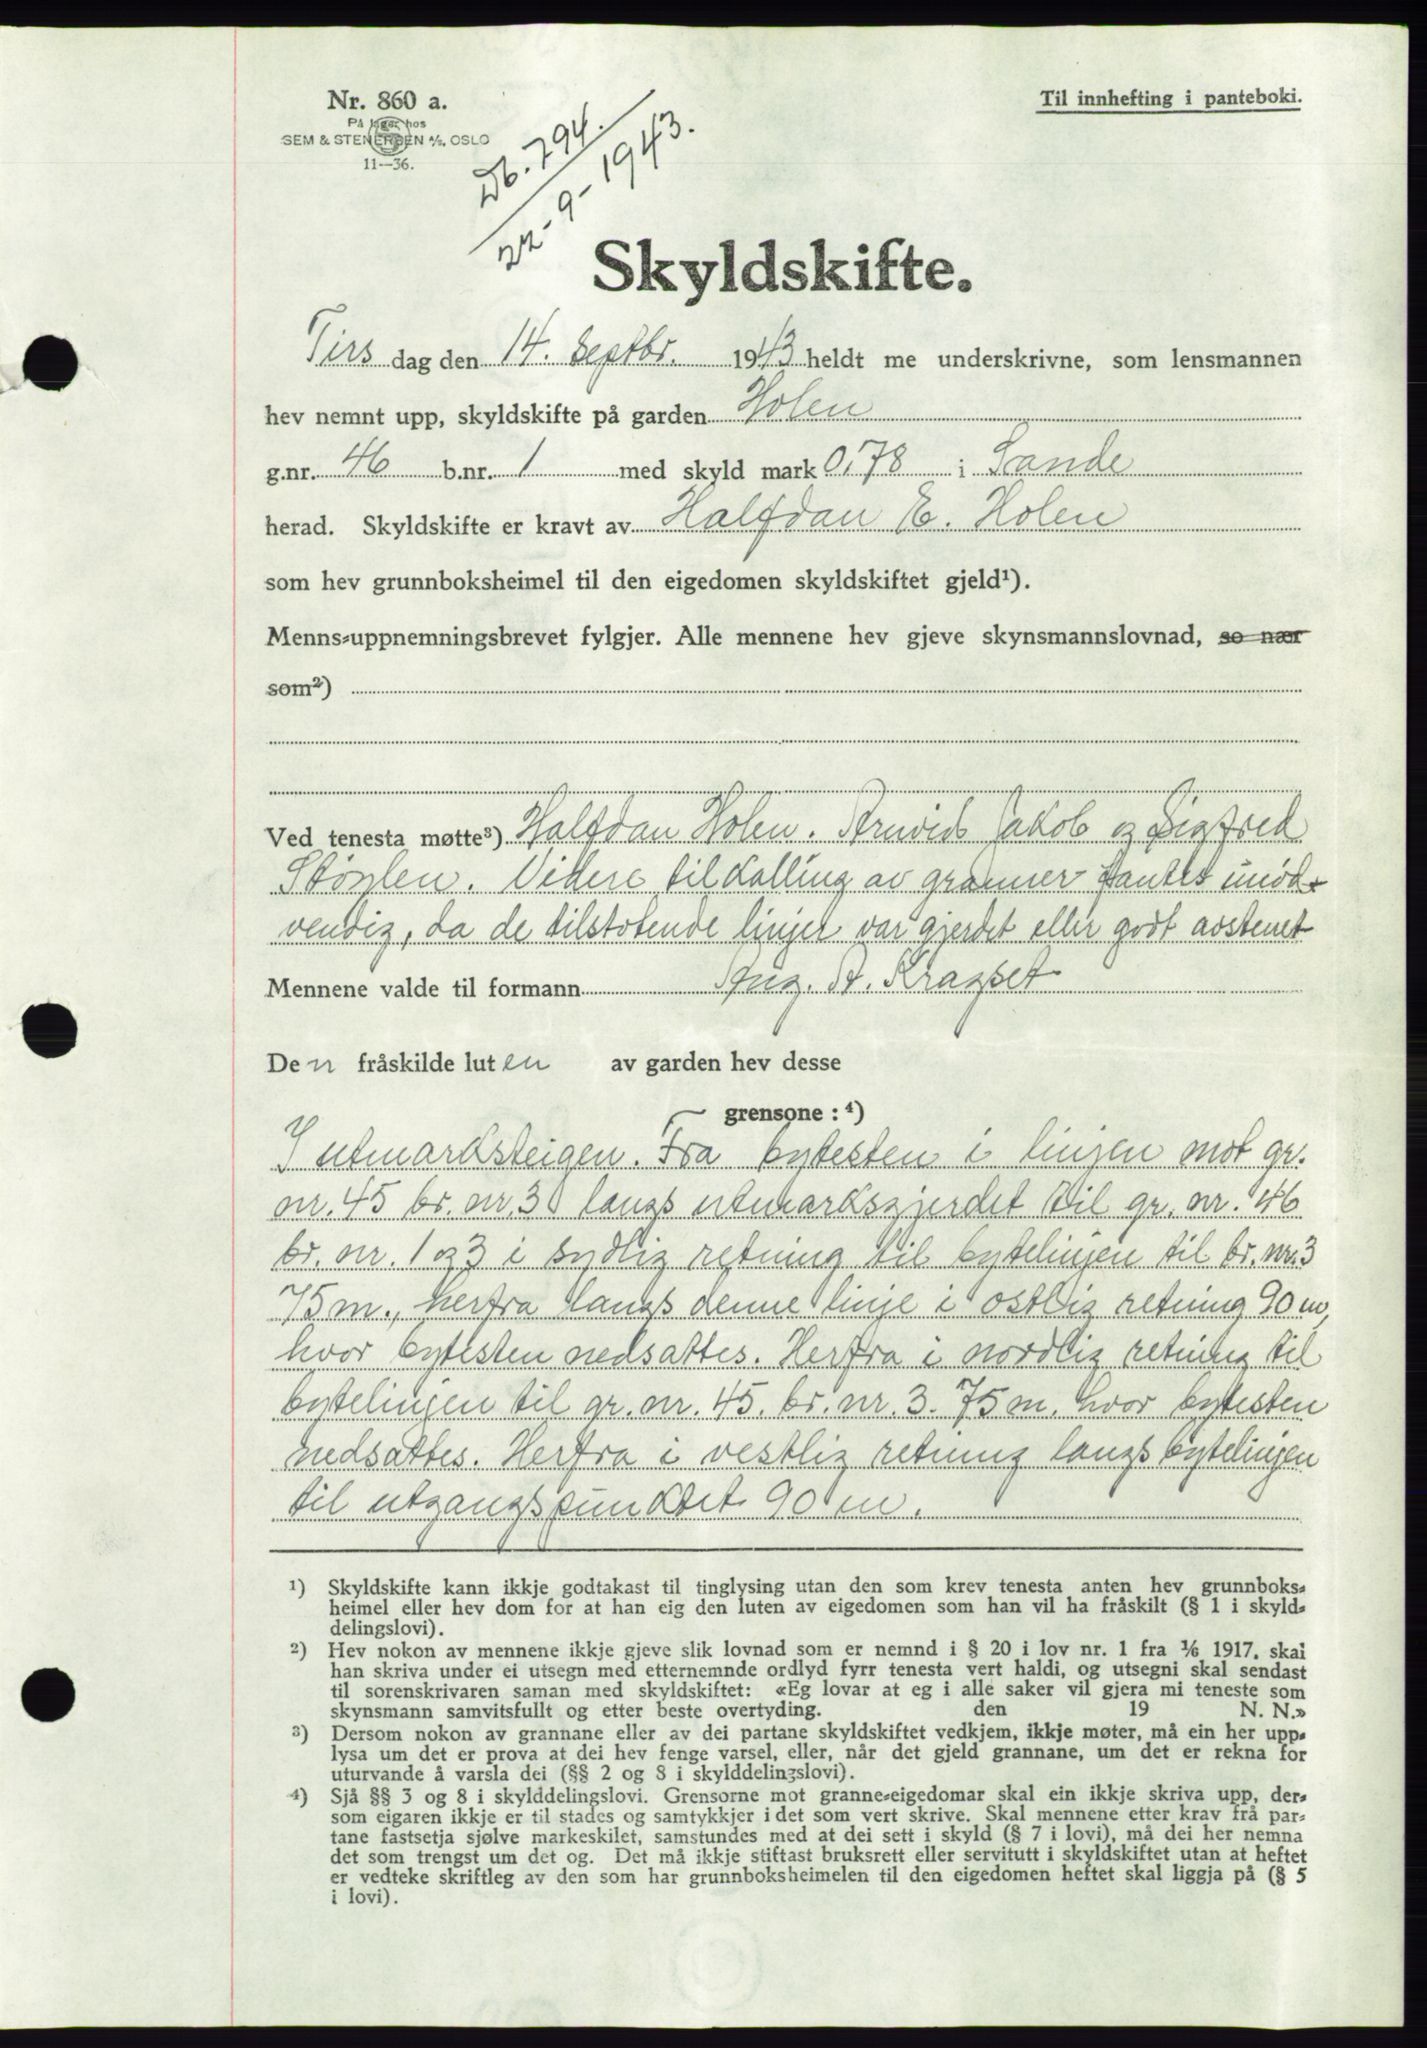 Nr. 860 a.
På lager hos
SEM & STENERSEN A/S, OSLO
11--36.
Til innhefting i panteboki.
Db. 794.
22-9-1943.
Skyldskifte.
Tirs dag den 14. Septbr. 1943 heldt me underskrivne, som lensmannen
hev nemnt upp, skyldskifte på garden Holen
g.nr. 46 b.nr. 1 med skyld mark 0,78 i Sande
herad. Skyldskifte er kravt av Halfdan E. Holen
som hev grunnboksheimel til den eigedomen skyldskiftet gjeld¹).
Menns-uppnemningsbrevet fylgjer. Alle mennene hev gjeve skynsmannslovnad, so nær
som²)
Ved tenesta møtte³) Halfdan Holen. Arvid Jakob og Sigfred
Støylen. Videre tilkalling av granner fantes unød-
vendig, da de tilstøtende linjer var gjerdet eller godt avstenet
Mennene valde til formann Aug. A. Kragset
Den fråskilde luten av garden hev desse
grensone : ⁴)
I utmarksteigen. Fra bytesten i linjen mot gr.
nr. 45 br. nr. 3 langs utmarksgjerdet til gr. nr. 46
br. nr. 1 og 3 i sydlig retning til bytelinjen til br. nr. 3
75 m., herfra langs denne linje i østlig retning 90 m,
hvor bytesten nedsattes. Herfra i nordlig retning til
bytelinjen til gr. nr. 45. br. nr. 3. 75 m. hvor bytesten
nedsattes. Herfra i vestlig retning langs bytelinjen
til utgangspunktet 90 m.
¹) Skyldskifte kann ikkje godtakast til tinglysing utan den som krev tenesta anten hev grunnboks-
heimel eller hev dom for at han eig den luten av eigedomen som han vil ha fråskilt (§ 1 i skyld-
delingslovi).
²) Hev nokon av mennene ikkje gjeve slik lovnad som er nemnd i § 20 i lov nr. 1 fra 1/6 1917, skal
han skriva under ei utsegn med etternemnde ordlyd fyrr tenesta vert haldi, og utsegni skal sendast
til sorenskrivaren saman med skyldskiftet: «Eg lovar at eg i alle saker vil gjera mi teneste som
skynsmann samvitsfullt og etter beste overtyding. den 19 N. N.»
³) Dersom nokon av grannane eller av dei partane skyldskiftet vedkjem, ikkje møter, må ein her upp-
lysa um det er prova at dei hev fenge varsel, eller, når det gjeld grannane, um det er rekna for
uturvande å varsla dei (§§ 2 og 8 i skylddelingslovi).
⁴) Sjå §§ 3 og 8 i skylddelingslovi. Grensorne mot granne-eigedomar skal ein ikkje skriva upp, der-
som eigaren ikkje er til stades og samtykkjer i det som vert skrive. Skal mennene etter krav frå par-
tane fastsetja sjølve markeskilet, samstundes med at dei sett i skyld (§ 7 i lovi), må dei her nemna
det som trengst um det og. Det må ikkje stiftast bruksrett eller servitutt i skyldskiftet utan at heftet
er vedteke skriftleg av den som har grunnboksheimelen til den eigedomen heftet skal liggja på (§ 5
i lovi).